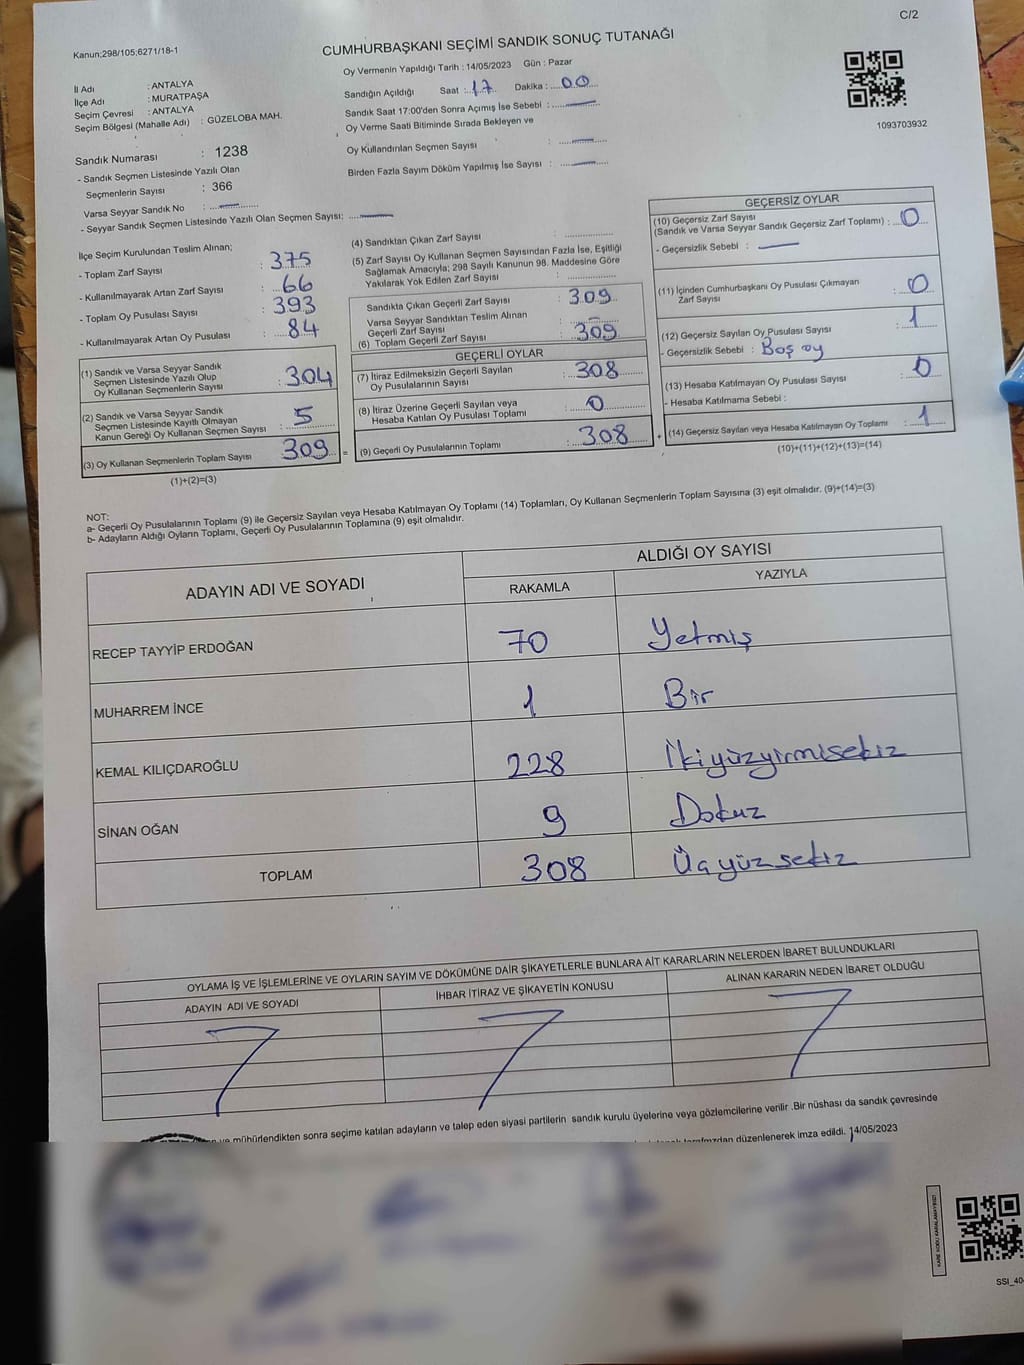 C/2
Kanun;298/105;6271/18-1
CUMHURBAŞKANI SEÇİMİ SANDIK SONUÇ TUTANAĞI
Oy Vermenin Yapıldığı Tarih : 14/05/2023 Gün : Pazar
İl Adı : ANTALYA
İlçe Adı : MURATPAŞA
Seçim Çevresi : ANTALYA
Seçim Bölgesi (Mahalle Adı) : GÜZELOBA MAH.
Sandığın Açıldığı Saat : 17 Dakika : 00
Sandık Saat 17:00'den Sonra Açımış İse Sebebi :
Oy Verme Saati Bitiminde Sırada Bekleyen ve
Oy Kullandırılan Seçmen Sayısı :
Birden Fazla Sayım Döküm Yapılmış İse Sayısı :
1093703932
Sandık Numarası : 1238
- Sandık Seçmen Listesinde Yazılı Olan
Seçmenlerin Sayısı : 366
Varsa Seyyar Sandık No :
- Seyyar Sandık Seçmen Listesinde Yazılı Olan Seçmen Sayısı:
İlçe Seçim Kurulundan Teslim Alınan;
- Toplam Zarf Sayısı : 375
- Kullanılmayarak Artan Zarf Sayısı : 66
- Toplam Oy Pusulası Sayısı : 393
- Kullanılmayarak Artan Oy Pusulası : 84
(1) Sandık ve Varsa Seyyar Sandık
Seçmen Listesinde Yazılı Olup
Oy Kullanan Seçmenlerin Sayısı : 304
(2) Sandık ve Varsa Seyyar Sandık
Seçmen Listesinde Kayıtlı Olmayan
Kanun Gereği Oy Kullanan Seçmen Sayısı : 5
(3) Oy Kullanan Seçmenlerin Toplam Sayısı : 309 =
(1)+(2)=(3)
(4) Sandıktan Çıkan Zarf Sayısı :
(5) Zarf Sayısı Oy Kullanan Seçmen Sayısından Fazla İse, Eşitliği
Sağlamak Amacıyla; 298 Sayılı Kanunun 98. Maddesine Göre
Yakılarak Yok Edilen Zarf Sayısı :
Sandıkta Çıkan Geçerli Zarf Sayısı : 309
Varsa Seyyar Sandıktan Teslim Alınan
Geçerli Zarf Sayısı : -
(6) Toplam Geçerli Zarf Sayısı : 309
GEÇERLİ OYLAR
(7) İtiraz Edilmeksizin Geçerli Sayılan
Oy Pusulalarının Sayısı : 308
(8) İtiraz Üzerine Geçerli Sayılan veya
Hesaba Katılan Oy Pusulası Toplamı : 0
(9) Geçerli Oy Pusulalarının Toplamı : 308 +
GEÇERSİZ OYLAR
(10) Geçersiz Zarf Sayısı
(Sandık ve Varsa Seyyar Sandık Geçersiz Zarf Toplamı) : 0
- Geçersizlik Sebebi :
(11) İçinden Cumhurbaşkanı Oy Pusulası Çıkmayan
Zarf Sayısı : 0
(12) Geçersiz Sayılan Oy Pusulası Sayısı : 1
- Geçersizlik Sebebi : Boş oy
(13) Hesaba Katılmayan Oy Pusulası Sayısı : 0
- Hesaba Katılmama Sebebi :
(14) Geçersiz Sayılan veya Hesaba Katılmayan Oy Toplamı : 1
(10)+(11)+(12)+(13)=(14)
NOT:
a- Geçerli Oy Pusulalarının Toplamı (9) ile Geçersiz Sayılan veya Hesaba Katılmayan Oy Toplamı (14) Toplamları, Oy Kullanan Seçmenlerin Toplam Sayısına (3) eşit olmalıdır. (9)+(14)=(3)
b- Adayların Aldığı Oyların Toplamı, Geçerli Oy Pusulalarının Toplamına (9) eşit olmalıdır.
ADAYIN ADI VE SOYADI
ALDIĞI OY SAYISI
RAKAMLA YAZIYLA
RECEP TAYYİP ERDOĞAN 70 Yetmiş
MUHARREM İNCE 1 Bir
KEMAL KILIÇDAROĞLU 228 İkiyüzyirmisekiz
SİNAN OĞAN 9 Dokuz
TOPLAM 308 Üçyüzsekiz
OYLAMA İŞ VE İŞLEMLERİNE VE OYLARIN SAYIM VE DÖKÜMÜNE DAİR ŞİKAYETLERLE BUNLARA AİT KARARLARIN NELERDEN İBARET BULUNDUKLARI
ADAYIN ADI VE SOYADI İHBAR İTİRAZ VE ŞİKAYETİN KONUSU ALINAN KARARIN NEDEN İBARET OLDUĞU
ve mühürlendikten sonra seçime katılan adayların ve talep eden siyasi partilerin sandık kurulu üyelerine veya gözlemcilerine verilir .Bir nüshası da sandık çevresinde
tarafımızdan düzenlenerek imza edildi. 14/05/2023
KARE KODU KARALAMAYINIZ!
SSI_40